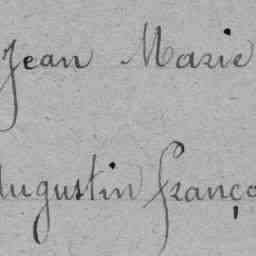 Jean Marie
Augustin Franço